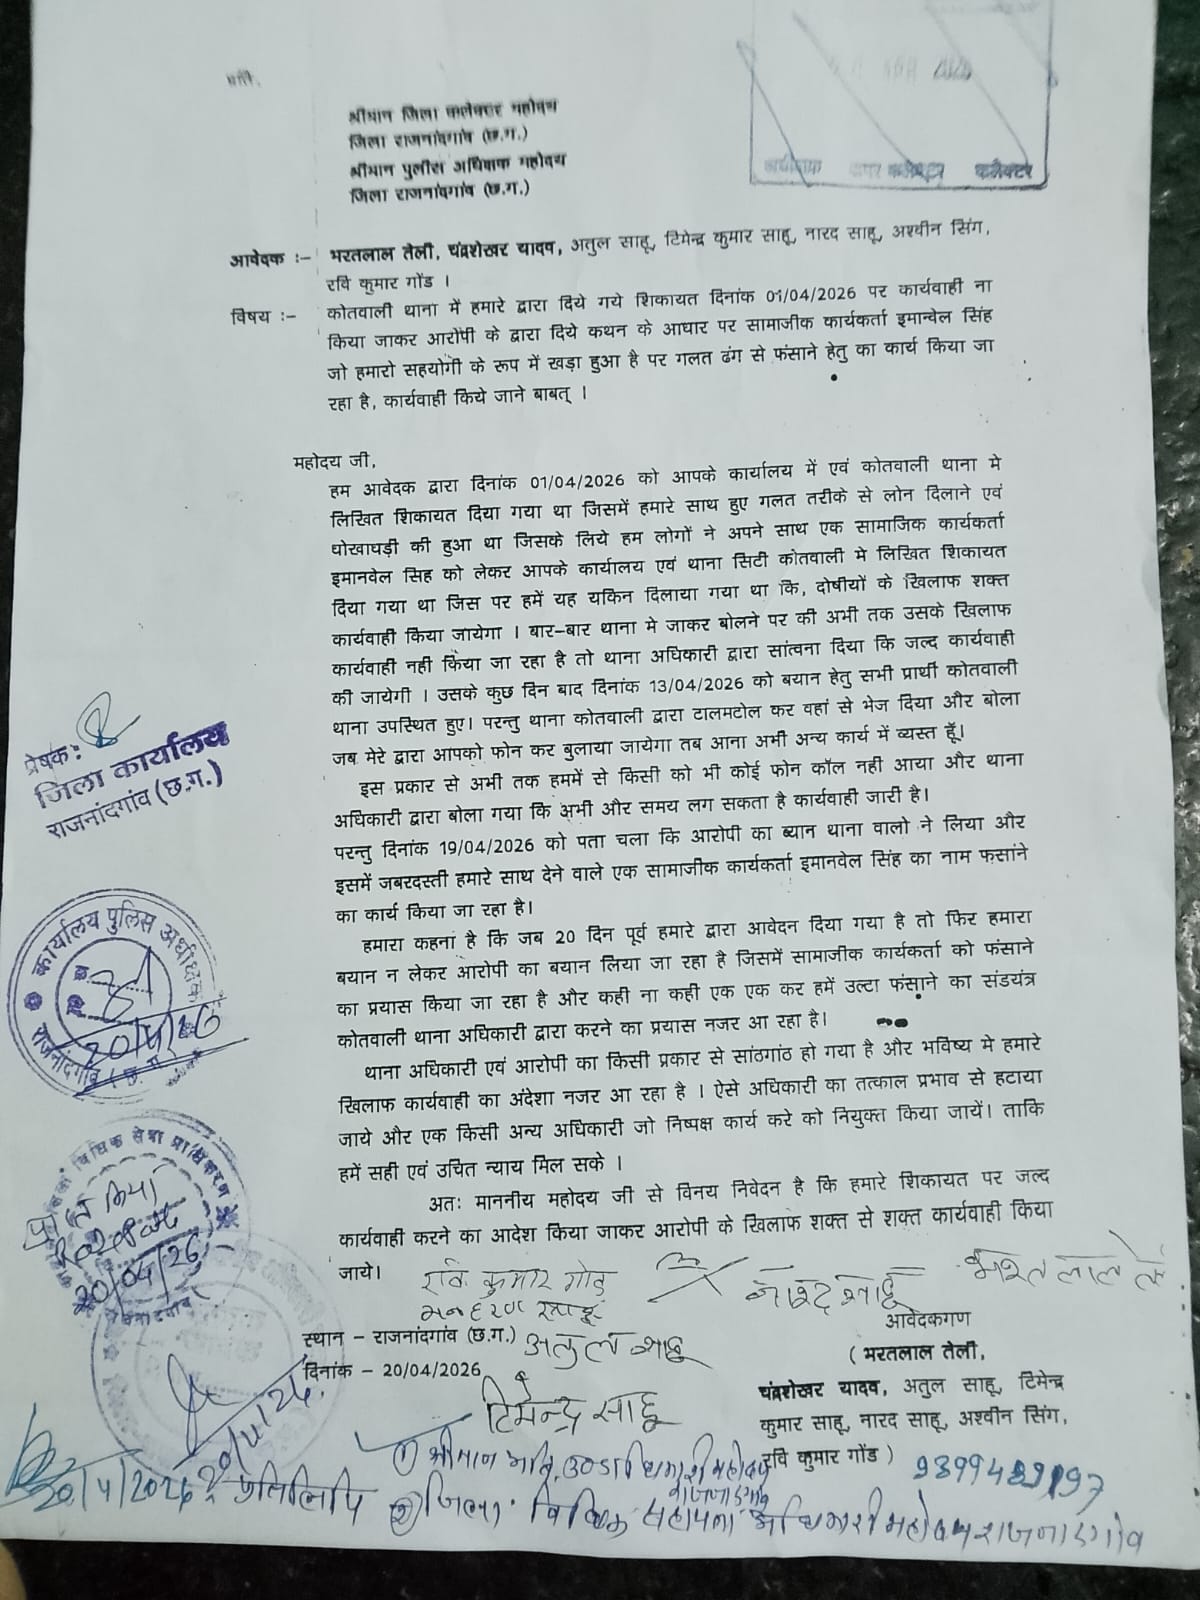 प्रति,
श्रीमान जिला कलेक्टर महोदय
जिला राजनांदगांव (छ.ग.)
श्रीमान पुलीस अधिक्षक महोदय
जिला राजनांदगांव (छ.ग.)
अपर कलेक्टर कलेक्टर
आवेदक :– भरतलाल तेली, चंद्रशेखर यादव, अतुल साहू, टिमेन्द्र कुमार साहू, नारद साहू, अश्वीन सिंग,
रवि कुमार गोंड ।
विषय :– कोतवाली थाना में हमारे द्वारा दिये गये शिकायत दिनांक 01/04/2026 पर कार्यवाही ना
किया जाकर आरोपी के द्वारा दिये कथन के आधार पर सामाजीक कार्यकर्ता इमान्वेल सिंह
जो हमारो सहयोगी के रूप में खड़ा हुआ है पर गलत ढंग से फंसाने हेतु का कार्य किया जा
रहा है, कार्यवाही किये जाने बाबत् ।
महोदय जी,
हम आवेदक द्वारा दिनांक 01/04/2026 को आपके कार्यालय में एवं कोतवाली थाना मे
लिखित शिकायत दिया गया था जिसमें हमारे साथ हुए गलत तरीके से लोन दिलाने एवं
धोखाधड़ी की हुआ था जिसके लिये हम लोगों ने अपने साथ एक सामाजिक कार्यकर्ता
इमानवेल सिह को लेकर आपके कार्यालय एवं थाना सिटी कोतवाली मे लिखित शिकायत
दिया गया था जिस पर हमें यह यकिन दिलाया गया था कि, दोषीयों के खिलाफ शक्त
कार्यवाही किया जायेगा । बार–बार थाना मे जाकर बोलने पर की अभी तक उसके खिलाफ
कार्यवाही नही किया जा रहा है तो थाना अधिकारी द्वारा सांत्वना दिया कि जल्द कार्यवाही
की जायेगी । उसके कुछ दिन बाद दिनांक 13/04/2026 को बयान हेतु सभी प्रार्थी कोतवाली
थाना उपस्थित हुए। परन्तु थाना कोतवाली द्वारा टालमटोल कर वहां से भेज दिया और बोला
जब मेरे द्वारा आपको फोन कर बुलाया जायेगा तब आना अभी अन्य कार्य में व्यस्त हूँ।
इस प्रकार से अभी तक हममें से किसी को भी कोई फोन कॉल नही आया और थाना
अधिकारी द्वारा बोला गया कि अभी और समय लग सकता है कार्यवाही जारी है।
परन्तु दिनांक 19/04/2026 को पता चला कि आरोपी का ब्यान थाना वालो ने लिया और
इसमें जबरदस्ती हमारे साथ देने वाले एक सामाजीक कार्यकर्ता इमानवेल सिंह का नाम फसांने
का कार्य किया जा रहा है।
हमारा कहना है कि जब 20 दिन पूर्व हमारे द्वारा आवेदन दिया गया है तो फिर हमारा
बयान न लेकर आरोपी का बयान लिया जा रहा है जिसमें सामाजीक कार्यकर्ता को फंसाने
का प्रयास किया जा रहा है और कही ना कही एक एक कर हमें उल्टा फंसाने का संडयंत्र
कोतवाली थाना अधिकारी द्वारा करने का प्रयास नजर आ रहा है।
थाना अधिकारी एवं आरोपी का किसी प्रकार से सांठगांठ हो गया है और भविष्य मे हमारे
खिलाफ कार्यवाही का अंदेशा नजर आ रहा है । ऐसे अधिकारी का तत्काल प्रभाव से हटाया
जाये और एक किसी अन्य अधिकारी जो निष्पक्ष कार्य करे को नियुक्त किया जायें। ताकि
हमें सही एवं उचित न्याय मिल सके ।
अतः माननीय महोदय जी से विनय निवेदन है कि हमारे शिकायत पर जल्द
कार्यवाही करने का आदेश किया जाकर आरोपी के खिलाफ शक्त से शक्त कार्यवाही किया
जाये।
प्रेषक:
जिला कार्यालय
राजनांदगांव (छ.ग.)
कार्यालय पुलिस अधीक्षक
राजनांदगांव (छ.ग.)
20/4/26
विधिक सेवा प्राधिकरण
प्राप्त किया
20/04/26
रवि कुमार गोंड
नारद साहू
भरत लाल
मनहरण साहू
स्थान – राजनांदगांव (छ.ग.)
अतुल साहू
दिनांक – 20/04/2026
टिमेन्द्र साहू
आवेदकगण
( भरतलाल तेली,
चंद्रशेखर यादव, अतुल साहू, टिमेन्द्र
कुमार साहू, नारद साहू, अश्वीन सिंग,
रवि कुमार गोंड )
20/4/2026
प्रतिलिपि
① श्रीमान महोदय
② जिला विधिक सहायता अधिकारी महोदय राजनांदगांव